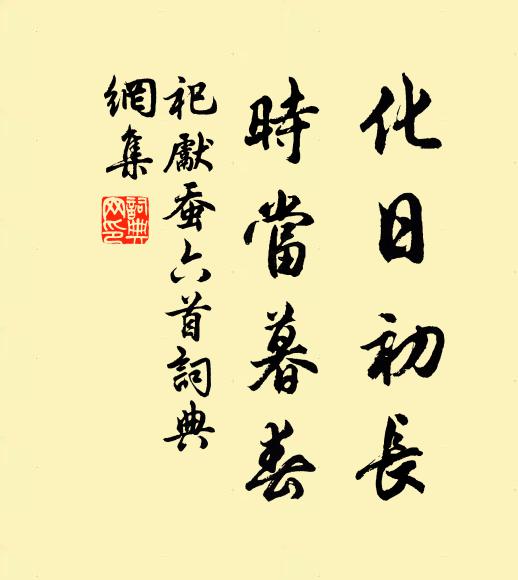 化日初長
時當暮春
祀獻蚕六首詞典
網集
詞典
网印